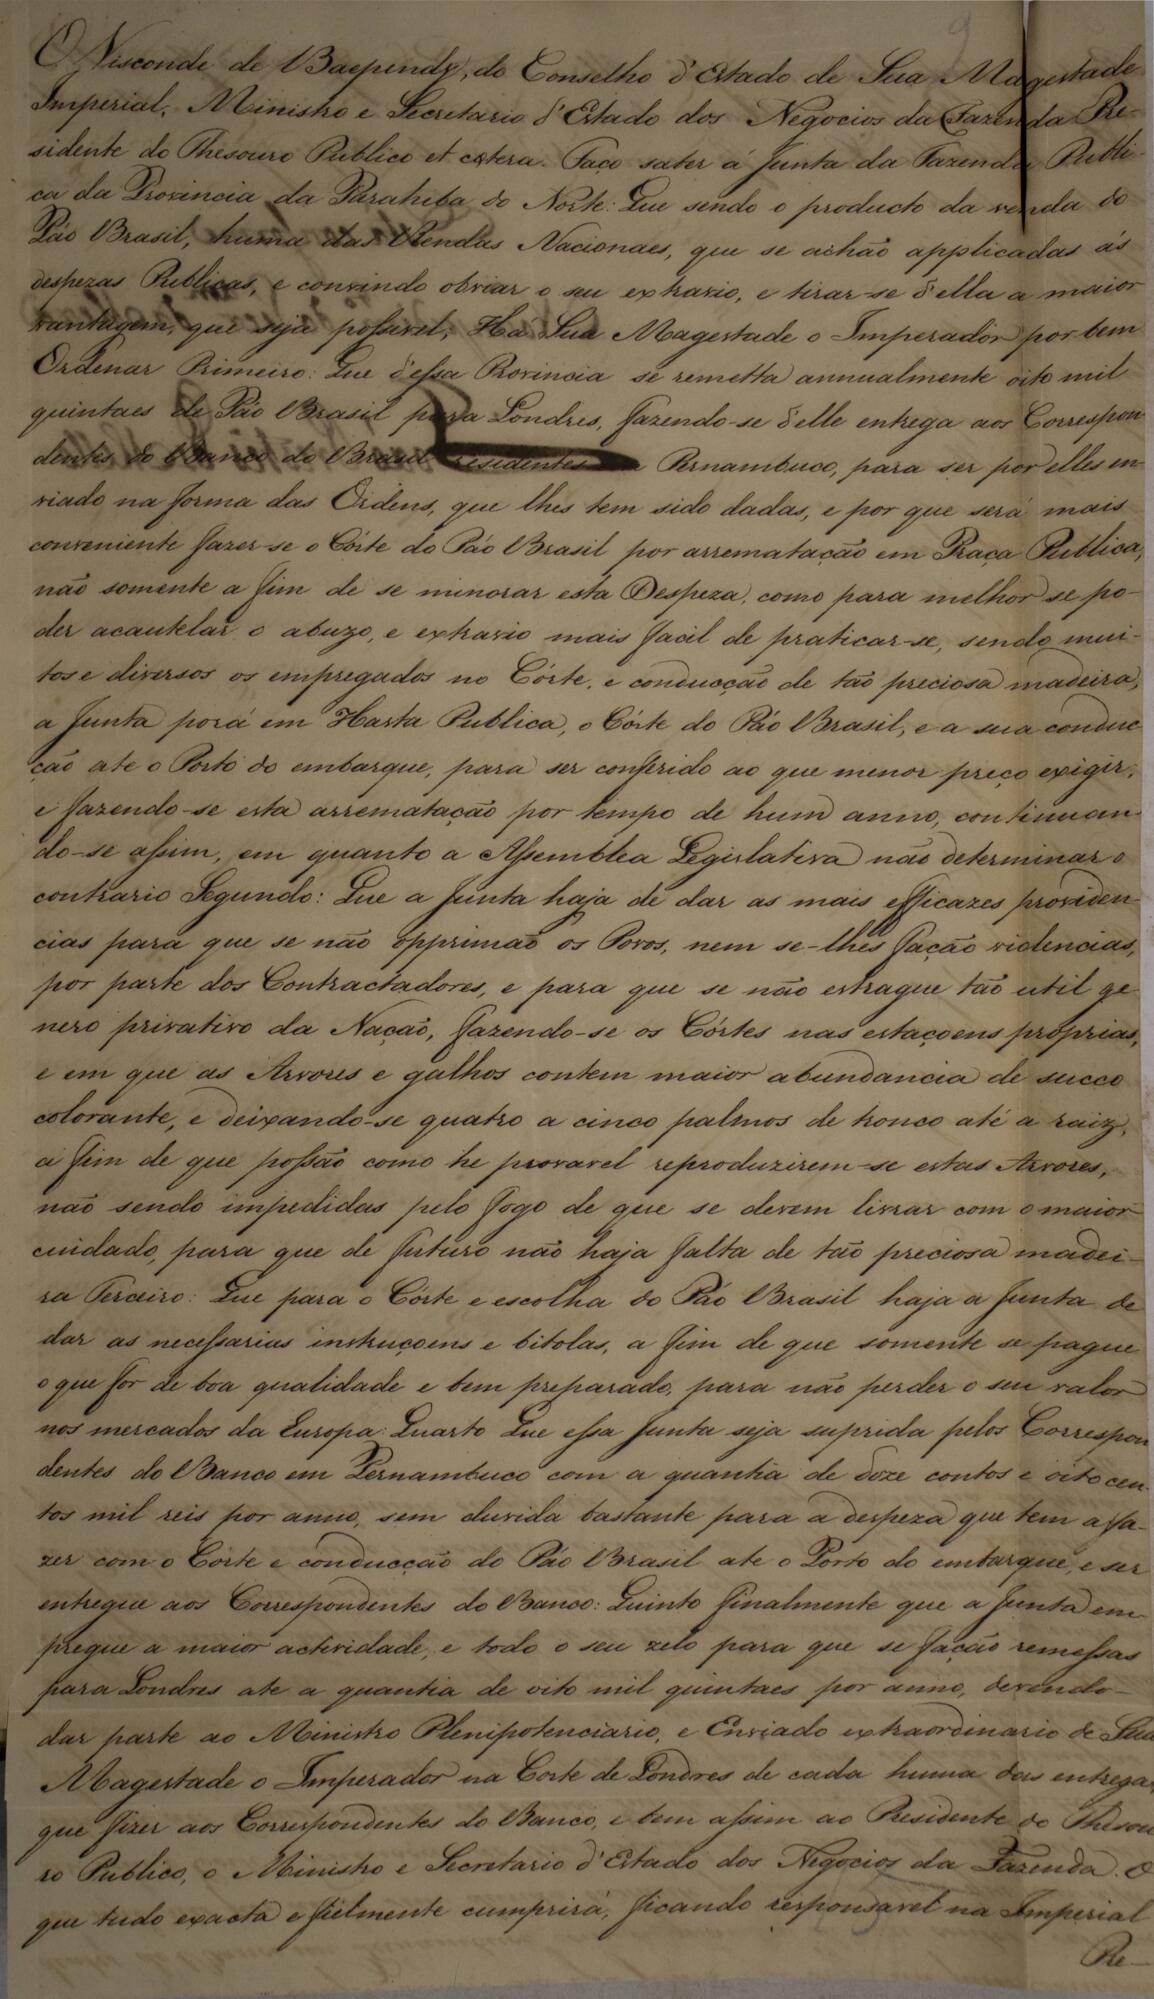 O Visconde de Baependy, do Conselho d'Estado de Sua Magestade
Imperial, Ministro e Secretario d'Estado dos Negocios da Fazenda Pre-
sidente do Thesouro Publico et cetera. Faço saber á Junta da Fazenda Publi-
ca da Provincia da Parahiba do Norte: Que sendo o producto da venda do
Páo Brasil, huma das Rendas Nacionaes, que se achão applicadas ás
despezas Publicas, e convindo obviar o seu extravio, e tirar-se d'ella a maior
vantagem, que seja possivel; Ha Sua Magestade o Imperador por bem
Ordenar Primeiro: Que d'essa Provincia se remetta annualmente oito mil
quintaes de Páo Brasil para Londres, fazendo-se d'elle entrega aos Correspon
dentes do Banco do Brasil residentes Pernambuco, para ser por elles en-
viado na forma das Ordens, que lhes tem sido dadas, e por que será mais
conveniente fazer-se o Córte do Páo Brasil por arrematação em Praça Publica,
não somente a fim de se minorar esta Despeza, como para melhor se po-
der acautelar o abuzo, e extravio mais facil de praticar-se, sendo mui-
tos e diversos os empregados no Córte, e conducção de tão preciosa madeira,
a Junta porá em Hasta Publica, o Córte do Páo Brasil, e a sua conduc
ção ate o Porto do embarque, para ser conferido ao que menor preço exigir,
e fazendo-se esta arrematação por tempo de hum anno, continuan-
do-se assim, em quanto a Assemblea Legislativa não determinar o
contrario Segundo: Que a Junta haja de dar as mais efficazes providen-
cias para que se não opprimão os Povos, nem se-lhes fação violencias,
por parte dos Contractadores, e para que se não estrague tão util ge
nero privativo da Nação, fazendo-se os Córtes nas estaçoens proprias,
e em que as Arvores e galhos contem maior abundancia de succo
colorante, e deixando-se quatro a cinco palmos de tronco até a raiz,
a fim de que possão como he provavel reproduzirem-se estas Arvores,
não sendo impedidas pelo fogo de que se devem livrar com o maior
cuidado, para que de futuro não haja falta de tão preciosa madei-
ra Terceiro: Que para o Córte e escolha do Páo Brasil haja a Junta de
dar as necessarias instruçoens e bitolas, a fim de que somente se pague
o que for de boa qualidade e bem preparado, para não perder o seu valor
nos mercados da Europa: Quarto Que essa Junta seja suprida pelos Correspon
dentes do Banco em Pernambuco com a quantia de doze contos e oito cen-
tos mil reis por anno, sem duvida bastante para a despeza que tem a fa-
zer com o Córte e conducção do Páo Brasil ate o Porto do embarque, e ser
entregue aos Correspondentes do Banco: Quinto finalmente que a Junta em-
pregue a maior actividade, e todo o seu zelo para que se fação remessas
para Londres ate a quantia de oito mil quintaes por anno, devendo-
dar parte ao Ministro Plenipotenciario, e Enviado extraordinario de Sua
Magestade o Imperador na Corte de Londres de cada huma das entregas,
que fizer aos Correspondentes do Banco, e bem assim ao Presidente do Thesou
ro Publico, o Ministro e Secretario d'Estado dos Negocios da Fazenda. O
que tudo exacta e fielmente cumprirá, ficando responsavel na Imperial
Re-